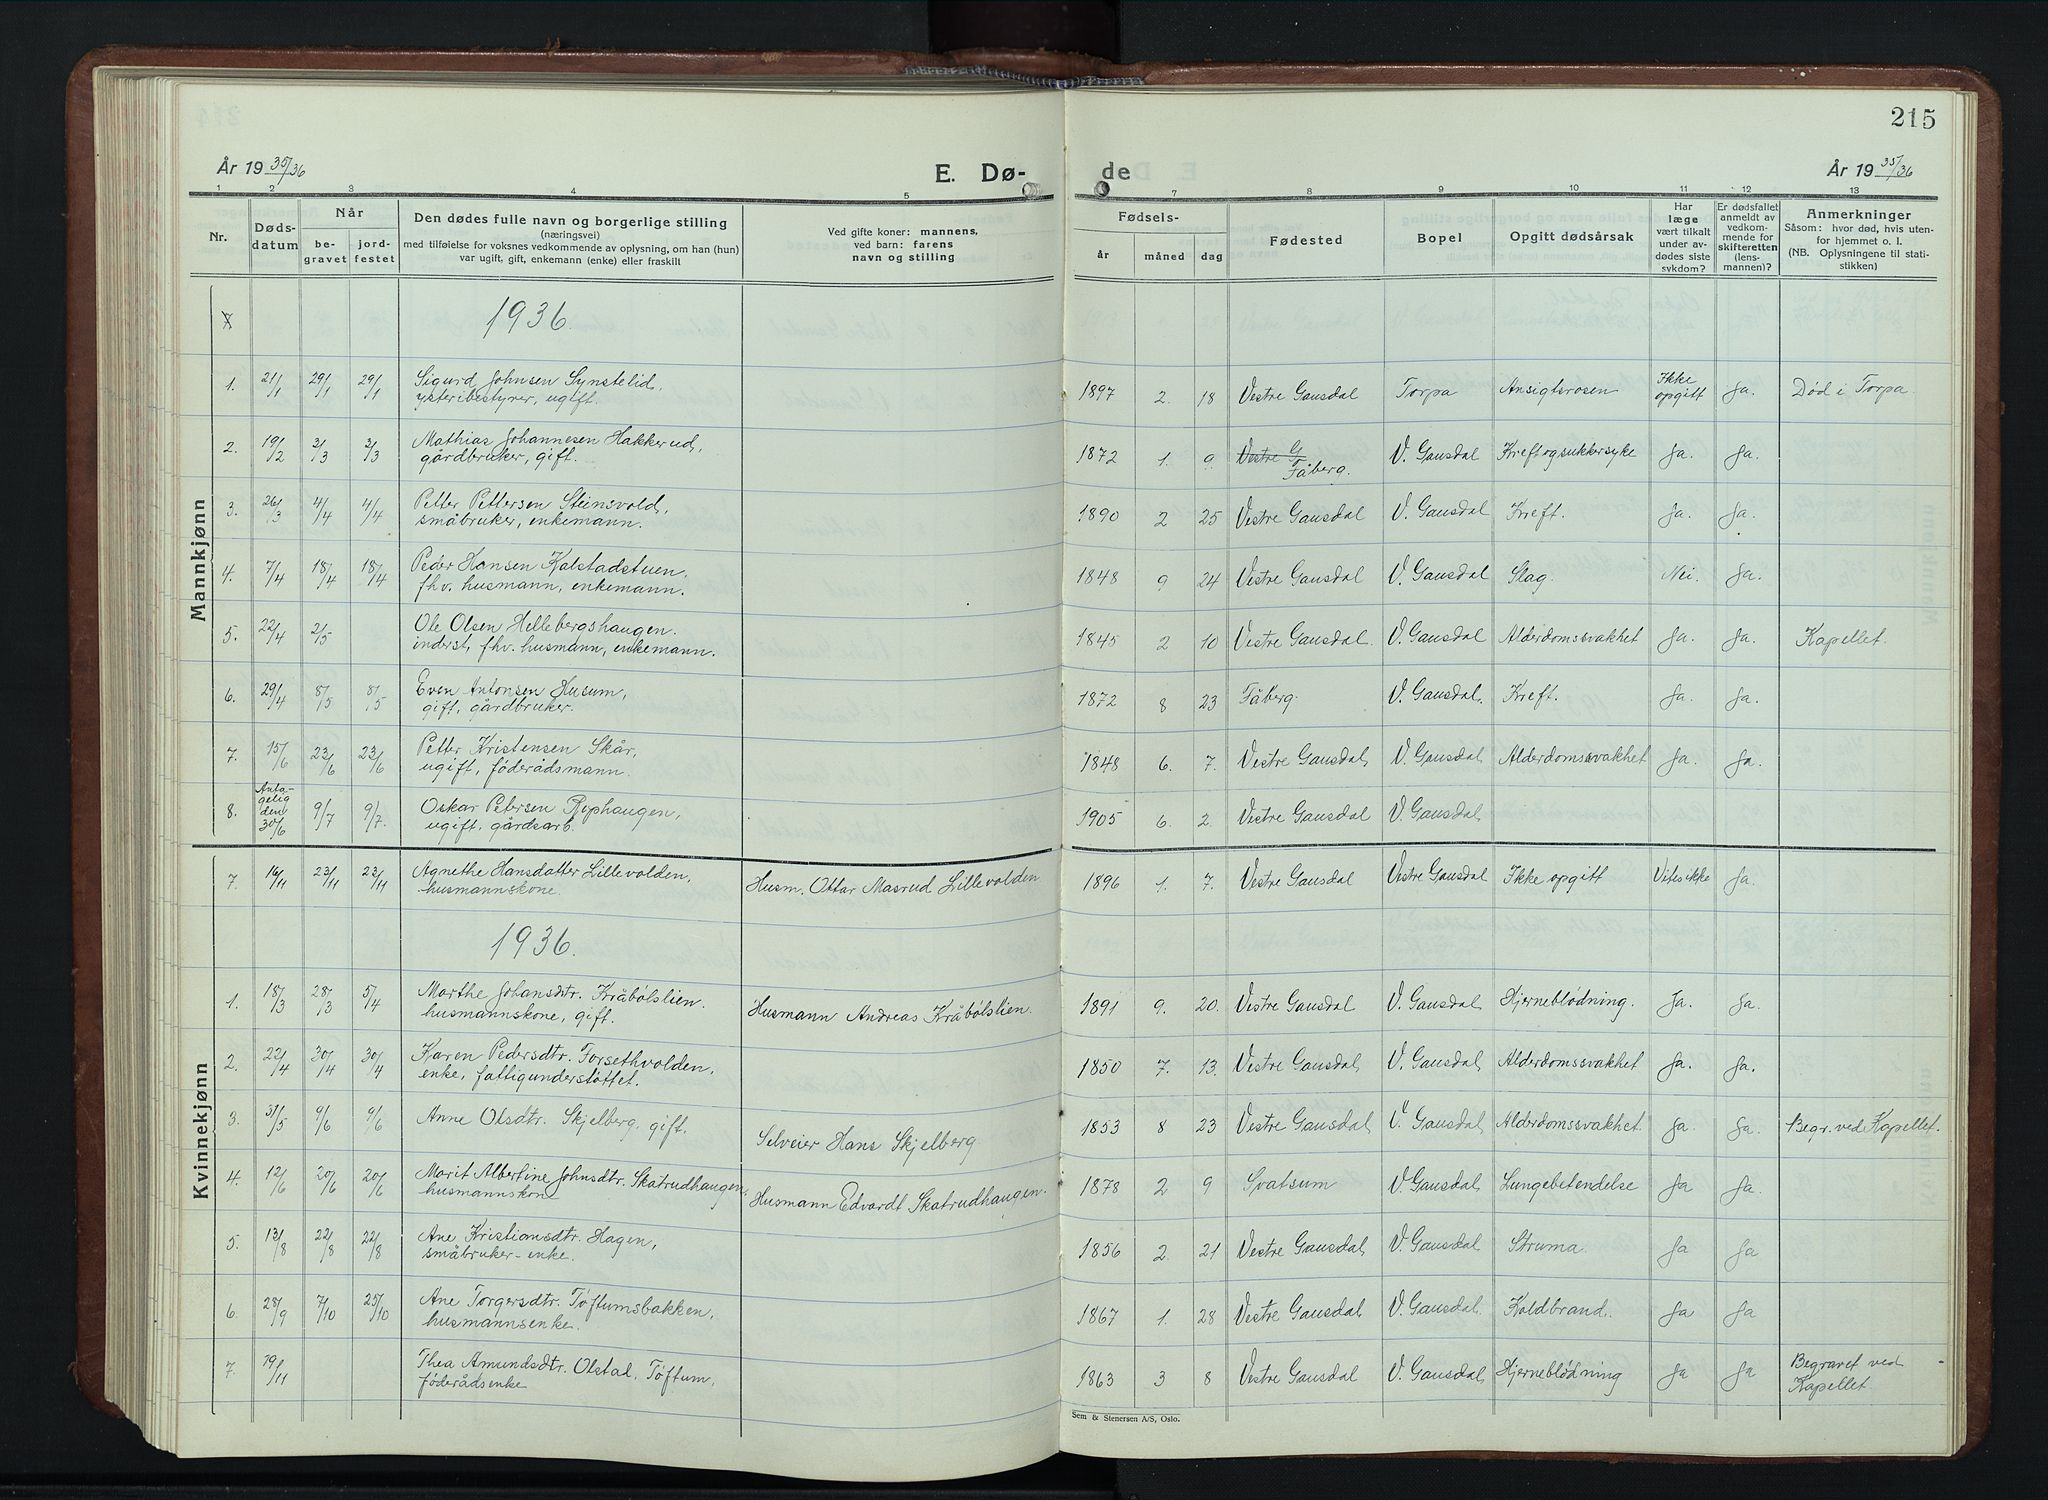 215
År 19 35/36
E. Dø-
de
År 19 35/36
1 2 3 4 5 7 8 9 10 11 12 13
Nr.
Døds-
datum
Når
be-
gravet
jord-
festet
Den dødes fulle navn og borgerlige stilling
(næringsvei)
med tilføielse for voksnes vedkommende av oplysning, om han (hun)
var ugift, gift, enkemann (enke) eller fraskilt
Ved gifte koner: mannens,
ved barn: farens
navn og stilling
Fødsels-
år måned dag
Fødested
Bopel
Opgitt dødsårsak
Har
læge
vært tilkalt
under av-
dødes siste
sykdom?
Er dødsfallet
anmeldt av
vedkom-
mende for
skifteretten
(lens-
mannen)?
Anmerkninger
Såsom: hvor død, hvis uten-
for hjemmet o. l.
(NB. Oplysningene til stati-
stikken)
Mannkjønn
1936.
1. 21/1 29/1 29/1 Sigurd Johnsen Synstelid, 1897 2. 18 Vestre Gausdal Torpa Ansigtsrosen Ikke opgitt Ja. Død i Torpa.
ysteribestyrer, ugift.
2. 19/2 3/3 3/3 Mathias Johannesen Hakkerud, 1872 1. 9. Vestre G Fåberg. V. Gausdal Kreft og sukkersyke Ja. Ja.
gårdbruker, gift.
3. 26/3 4/4 4/4 Petter Pettersen Steinsvold, 1890 2 25 Vestre Gausdal V. Gausdal Kreft. Ja. Ja.
småbruker, enkemann.
4. 7/4 18/4 18/4 Peder Hansen Kalstadstuen, 1848 9 24 Vestre Gausdal V. Gausdal Slag. Nei. Ja.
fhv. husmann, enkemann.
5. 22/4 2/5 Ole Olsen Hellebergshaugen. 1845 2 10 Vestre Gausdal V. Gausdal Alderdomssvakhet Ja. Ja. Kapellet.
inderst, fhv. husmann, enkemann.
6. 29/4 8/5 8/5 Even Antonsen Husum, 1872 8 23 Fåberg. V. Gausdal. Kreft. Ja. Ja.
gift, gårdbruker.
7. 15/6 23/6 23/6 Petter Kristensen Skår, 1848 6. 7. Vestre Gausdal V. Gausdal Alderdomssvakhet Ja. Ja.
ugift, föderådsmann.
8. Anta-gelig den 30/6 9/7 9/7. Oskar Petersen Rophaugen, 1905 6. 2. Vestre Gausdal V. Gausdal
ugift, gårdsarb.
Kvinnekjønn
7. 16/11 23/11 23/11 Agnethe Hansdatter Lillevolden, Husm. Ottar Masrud Lillevolden 1896 1. 7. Vestre Gausdal Vestre Gausdal Ikke opgitt Vites ikke Ja.
husmannskone.
1936.
1. 18/3 28/3 5/4 Marthe Johansdtr. Kråbölslien. Husmann Andreas Kråbölslien. 1891 9. 20. Vestre Gausdal V. Gausdal Hjerneblödning. Ja. Ja.
husmannskone, gift.
2. 22/4 30/4 30/4 Karen Pedersdtr. Forsethvolden, 1850 7. 13. Vestre Gausdal V. Gausdal Alderdomssvakhet Ja. Ja.
enke, fattigunderstöttet.
3. 31/5 9/6 9/6 Anne Olsdtr. Skjelberg, gift. Selveier Hans Skjelberg 1853 8 23 Vestre Gausdal V. Gausdal Alderdomssvakhet. Ja. Ja. Begr. ved Kapellet.
4. 12/6 20/6 20/6 Marit Albertine Johnsdtr. Skatrudhaugen, Husmann Edvardt Skatrudhaugen. 1878 2 9 Svatsum V. Gausdal Lungebetendelse Ja Ja.
husmannskone
5. 13/8 22/8 22/8 Ane Kristiansdtr. Hagen, 1856 2. 21 Vestre Gausdal V. Gausdal Struma. Ja Ja
småbruker-enke.
6. 28/9 7/10 25/10 Ane Torgersdtr. Töftumsbakken, 1867 1. 28 Vestre Gausdal V. Gausdal. Koldbrand. Ja Ja
husmannsenke.
7. 19/11 Thea Amundsdtr. Olstad, Töftum, 1863 3 8 Vestre Gausdal V. Gausdal Hjerneblödning Ja Ja Begravet ved Kapellet.
föderådsenke
Sem & Stenersen A/S, Oslo.